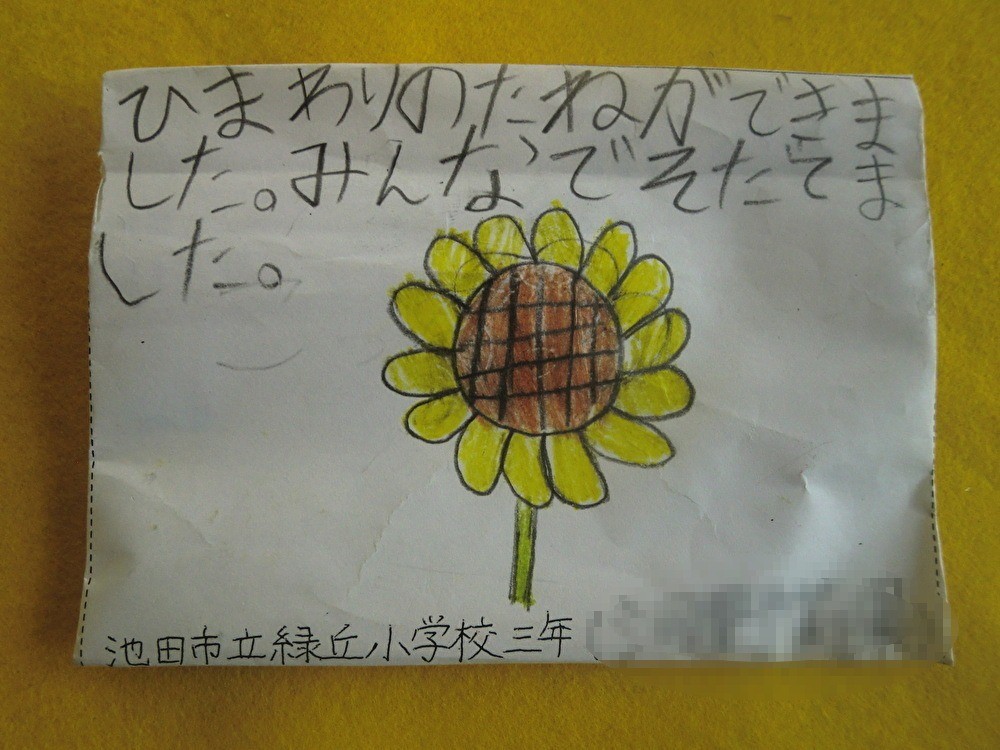 ひまわりのたねができま
した。みんなでそだてま
した。
池田市立緑丘小学校三年